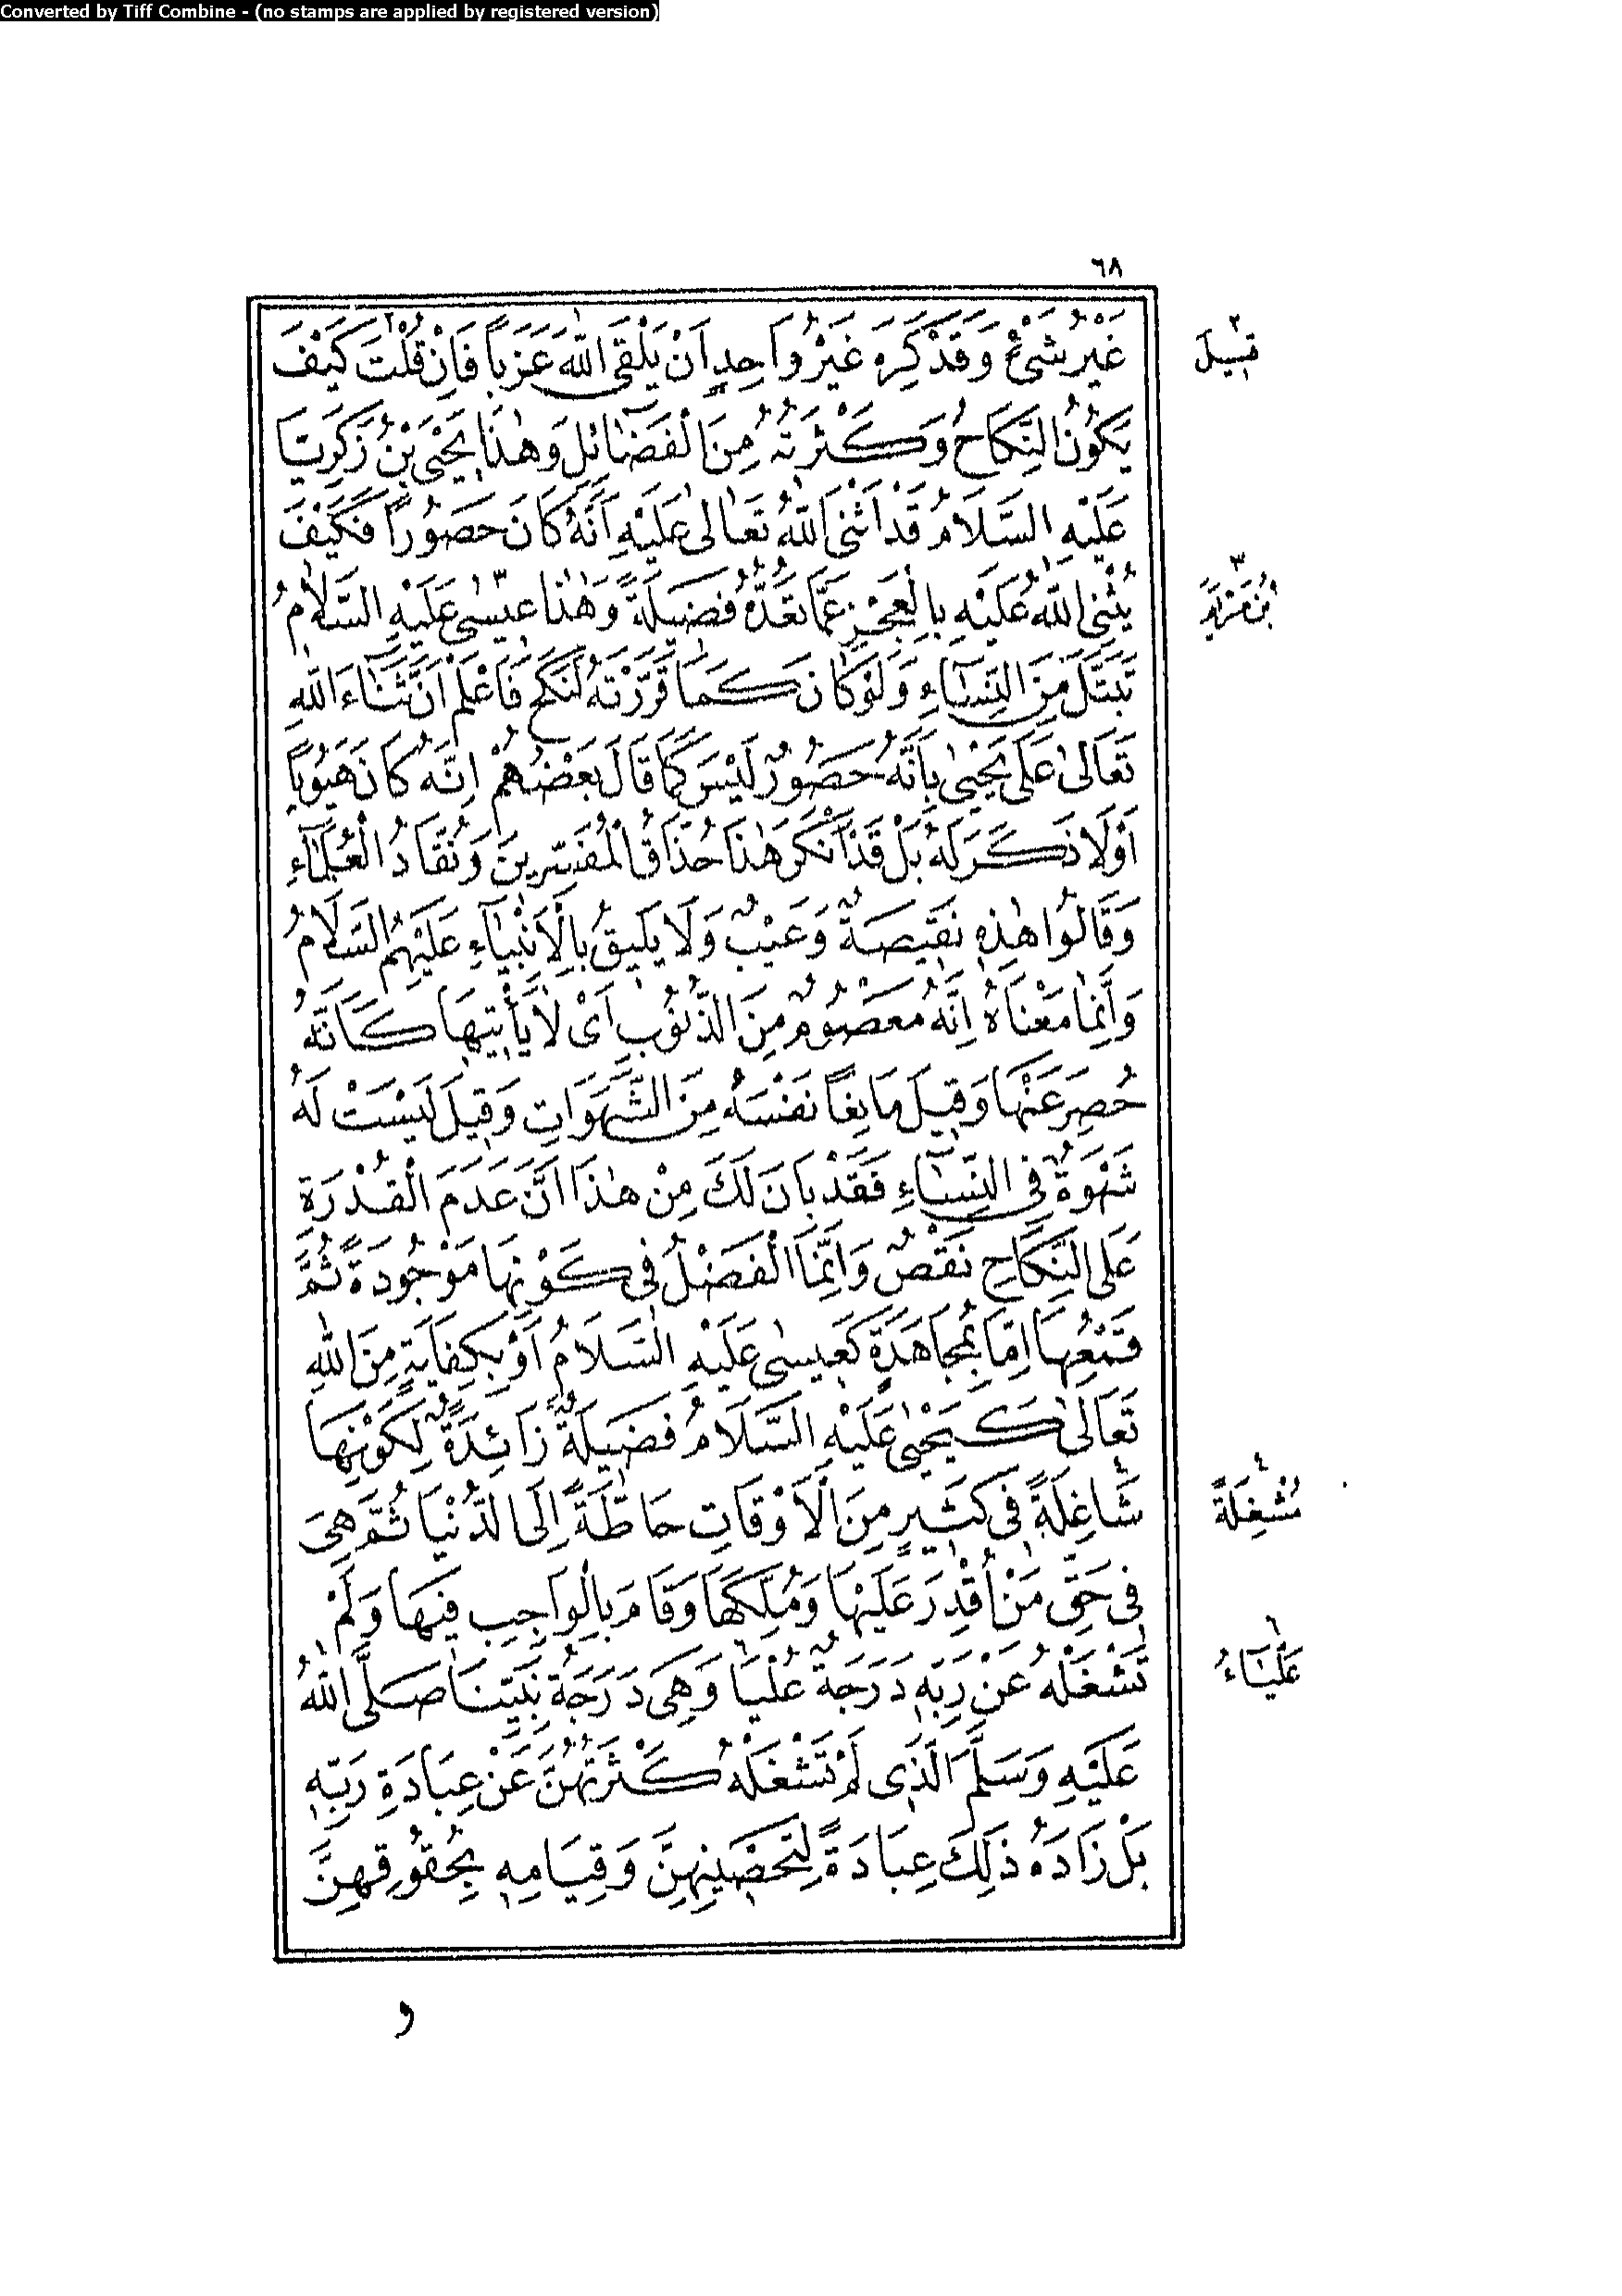 Converted by Tiff Combine - (no stamps are applied by registered version)
٦٨
غَيْرُ شَيْءٍ وَقَدْ كَرِهَ غَيْرُ وَاحِدٍ اَنْ يَلْقَى اللّٰهَ عَزَبًا فَاِنْ قُلْتَ٢ كَيْفَ
يَكُونُ النِّكَاحُ وَكَثْرَتُهُ مِنَ الْفَضَائِلِ وَهٰذَا يَحْيَى بْنُ زَكَرِيَّا
عَلَيْهِ السَّلَامُ قَدْ اَثْنَى اللّٰهُ تَعَالٰى عَلَيْهِ اَنَّهُ كَانَ حَصُورًا فَكَيْفَ
يُثْنِى اللّٰهُ عَلَيْهِ بِالْعَجْزِ عَمَّا تَعُدُّهُ فَضِيلَةً وَهٰذَا عِيسٰى٣ عَلَيْهِ السَّلَامُ
تَبَتَّلَ مِنَ النِّسَاءِ وَلَوْ كَانَ كَمَا قَرَّرْتَهُ لَنَكَحَ فَاعْلَمْ اَنَّ ثَنَاءَ اللّٰهِ
تَعَالٰى عَلَى يَحْيٰى بِاَنَّهُ حَصُورٌ لَيْسَ كَمَا قَالَ بَعْضُهُمْ اِنَّهُ كَانَ هَيُوبًا
اَوْ لَا ذَكَرَ لَهُ بَلْ قَدْ اَنْكَرَ هٰذَا حُذَّاقُ الْمُفَسِّرِينَ وَنُقَّادُ الْعُلَمَاءِ
وَقَالُوا هٰذِهِ نَقِيصَةٌ وَعَيْبٌ وَلَا يَلِيقُ بِالْاَنْبِيَاءِ عَلَيْهِمُ السَّلَامُ
وَاِنَّمَا مَعْنَاهُ اِنَّهُ مَعْصُومٌ مِنَ الذُّنُوبِ اَىْ لَا يَأْتِيهَا كَاَنَّهُ
حُصِرَ عَنْهَا وَقِيلَ مَانِعًا نَفْسَهُ مِنَ الشَّهَوَاتِ وَقِيلَ لَيْسَتْ لَهُ
شَهْوَةٌ فِى النِّسَاءِ فَقَدْ بَانَ لَكَ مِنْ هٰذَا اَنَّ عَدَمَ الْقُدْرَةِ
عَلَى النِّكَاحِ نَقْصٌ وَاِنَّمَا الْفَضْلُ فِى كَوْنِهَا مَوْجُودَةً ثُمَّ
قَمْعُهَا اِمَّا بِمُجَاهَدَةٍ كَعِيسٰى عَلَيْهِ السَّلَامُ اَوْ بِكِفَايَةٍ مِنَ اللّٰهِ
تَعَالٰى كَيَحْيٰى عَلَيْهِ السَّلَامُ فَضِيلَةٌ زَائِدَةٌ لِكَوْنِهَا
شَاغِلَةً٤ فِى كَثِيرٍ مِنَ الْاَوْقَاتِ حَاطَّةً اِلَى الدُّنْيَا ثُمَّ هِىَ
فِى حَقِّ مَنْ اُقْدِرَ عَلَيْهَا وَمُلِّكَهَا وَقَامَ بِالْوَاجِبِ فِيهَا وَلَمْ
تَشْغَلْهُ عَنْ رَبِّهِ دَرَجَةٌ عُلْيَا٦ وَهِىَ دَرَجَةُ نَبِيِّنَا صَلَّى اللّٰهُ
عَلَيْهِ وَسَلَّمَ الَّذِى لَمْ تَشْغَلْهُ كَثْرَتُهُنَّ عَنْ عِبَادَةِ رَبِّهِ
بَلْ زَادَهُ ذٰلِكَ عِبَادَةً لِتَحْصِينِهِنَّ وَقِيَامِهِ بِحُقُوقِهِنَّ
٢
قِيلَ
٣
ابْنُ مَرْيَمَ
٤
مُشْغِلَةً
٦
عَلْيَاءُ
و